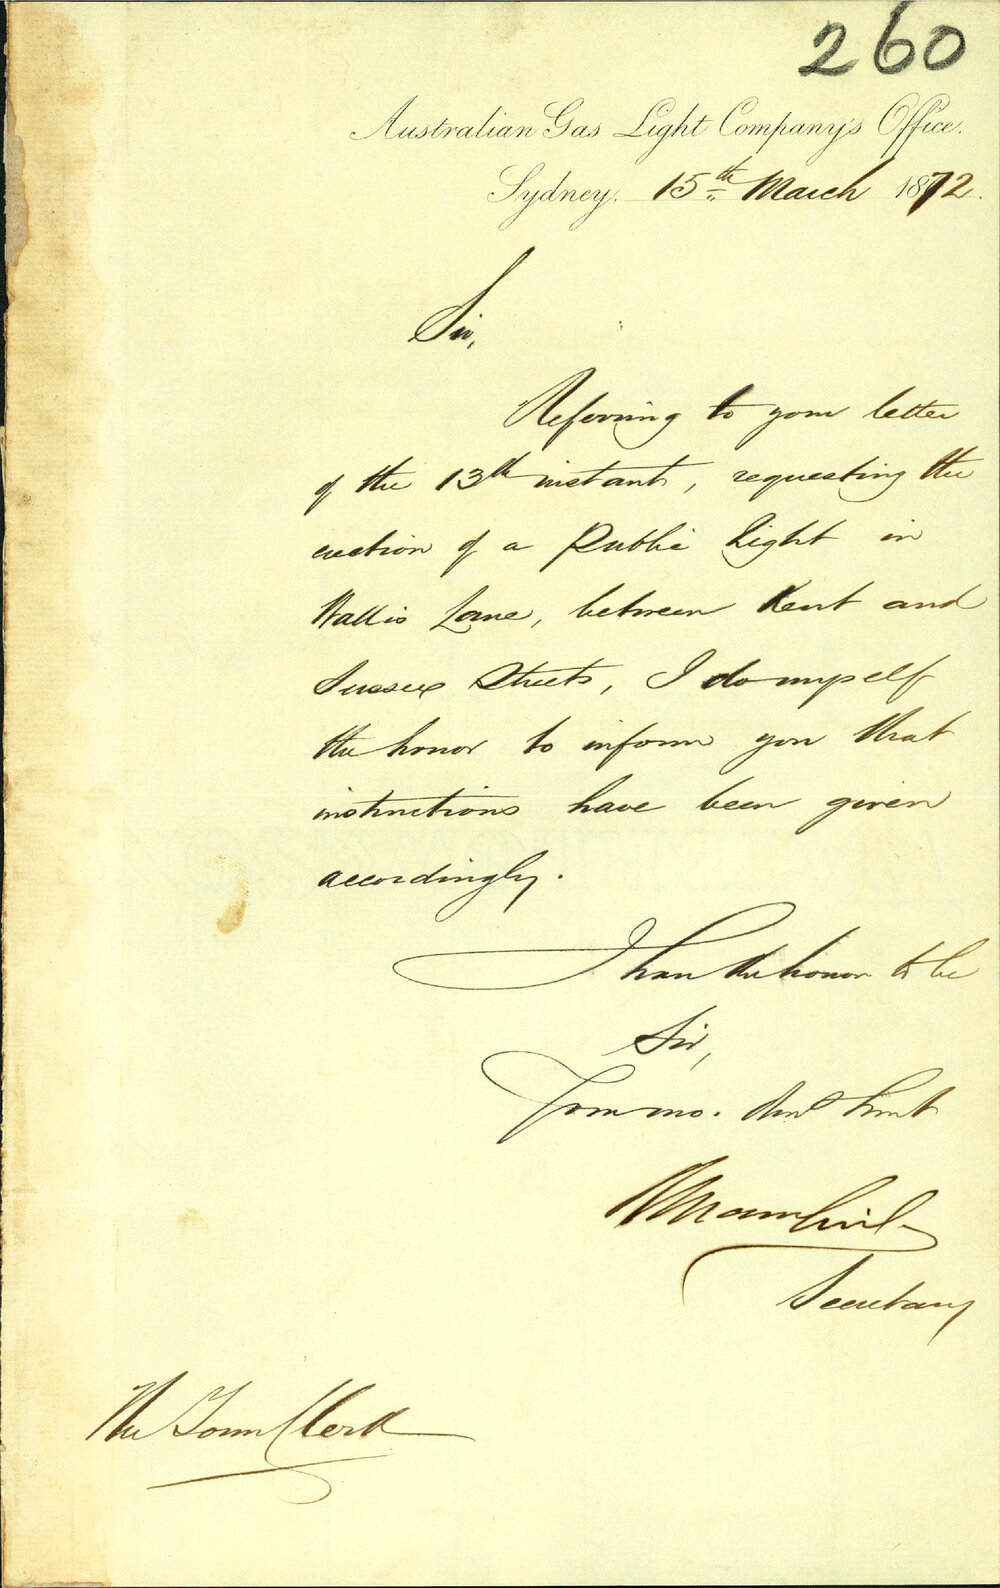 260
Australian Gas Light Company's Office.
Sydney. 15th March 1872.
Sir,
Referring to your letter
of the 13th instant, requesting the
erection of a Public Light in
Wallis Lane, between Kent and
Sussex Streets, I do myself
the honor to inform you that
instructions have been given
accordingly.
I have the honor to be
Sir,
Your mo. Obnt Servt
Secretary
The Town Clerk